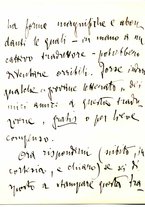 ha forme magnifiche e abon
danti le quali – in mano a un
cattivo traduttore – potrebbero
diventare orribili. Forse
qualche giovine letterato, dei
miei amici a questa tradu
zione, gratis o per breve
compenso.
Ora rispondimi subito, in
cortesia, e chiaro, se sei di
sposto a stampare questa tra